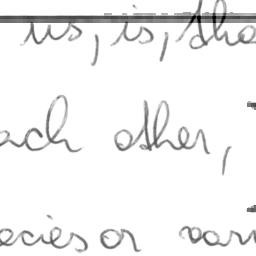 us, is, tha
ach other,
ecies or vari